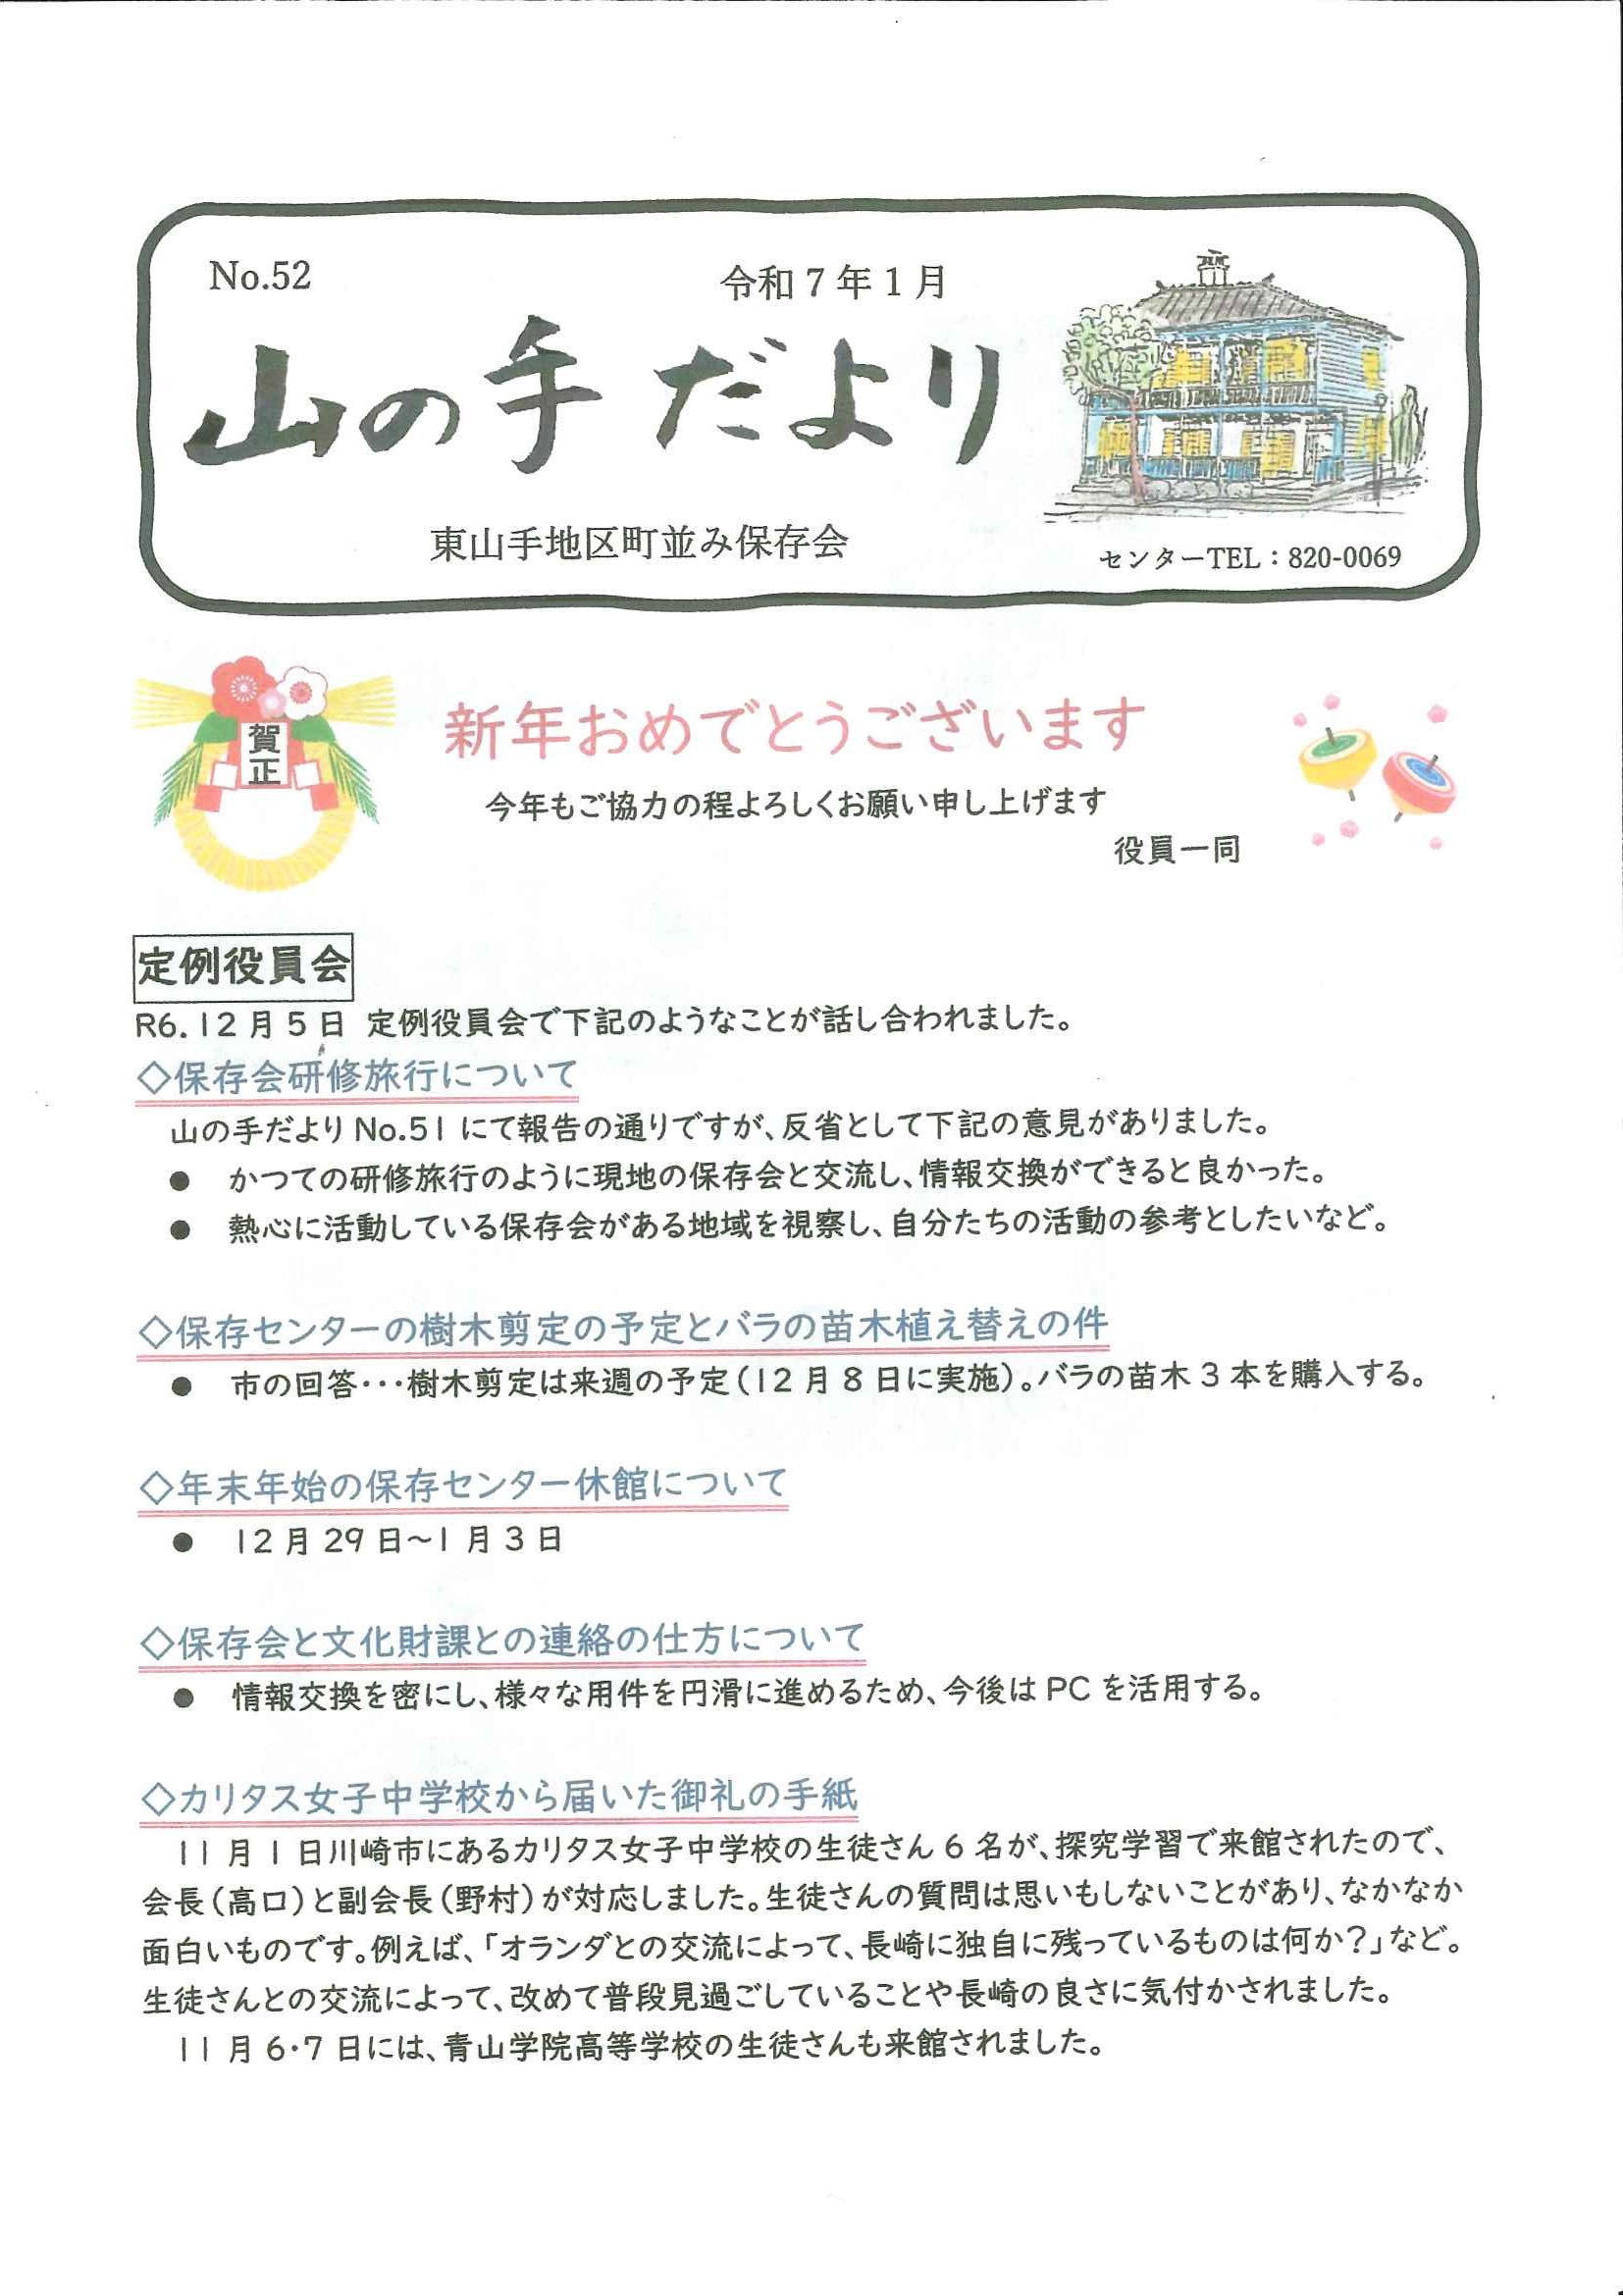 No.52
令和7年1月
山の手だより
東山手地区町並み保存会
センターTEL：820-0069
賀正
新年おめでとうございます
今年もご協力の程よろしくお願い申し上げます
役員一同
定例役員会
R6.12月5日 定例役員会で下記のようなことが話し合われました。
◇保存会研修旅行について
山の手だよりNo.51にて報告の通りですが、反省として下記の意見がありました。
● かつての研修旅行のように現地の保存会と交流し、情報交換ができると良かった。
● 熱心に活動している保存会がある地域を視察し、自分たちの活動の参考としたいなど。
◇保存センターの樹木剪定の予定とバラの苗木植え替えの件
● 市の回答･･･樹木剪定は来週の予定（12月8日に実施）。バラの苗木3本を購入する。
◇年末年始の保存センター休館について
● 12月29日～1月3日
◇保存会と文化財課との連絡の仕方について
● 情報交換を密にし、様々な用件を円滑に進めるため、今後はPCを活用する。
◇カリタス女子中学校から届いた御礼の手紙
11月1日川崎市にあるカリタス女子中学校の生徒さん6名が、探究学習で来館されたので、
会長（高口）と副会長（野村）が対応しました。生徒さんの質問は思いもしないことがあり、なかなか
面白いものです。例えば、「オランダとの交流によって、長崎に独自に残っているものは何か？」など。
生徒さんとの交流によって、改めて普段見過ごしていることや長崎の良さに気付かされました。
11月6･7日には、青山学院高等学校の生徒さんも来館されました。